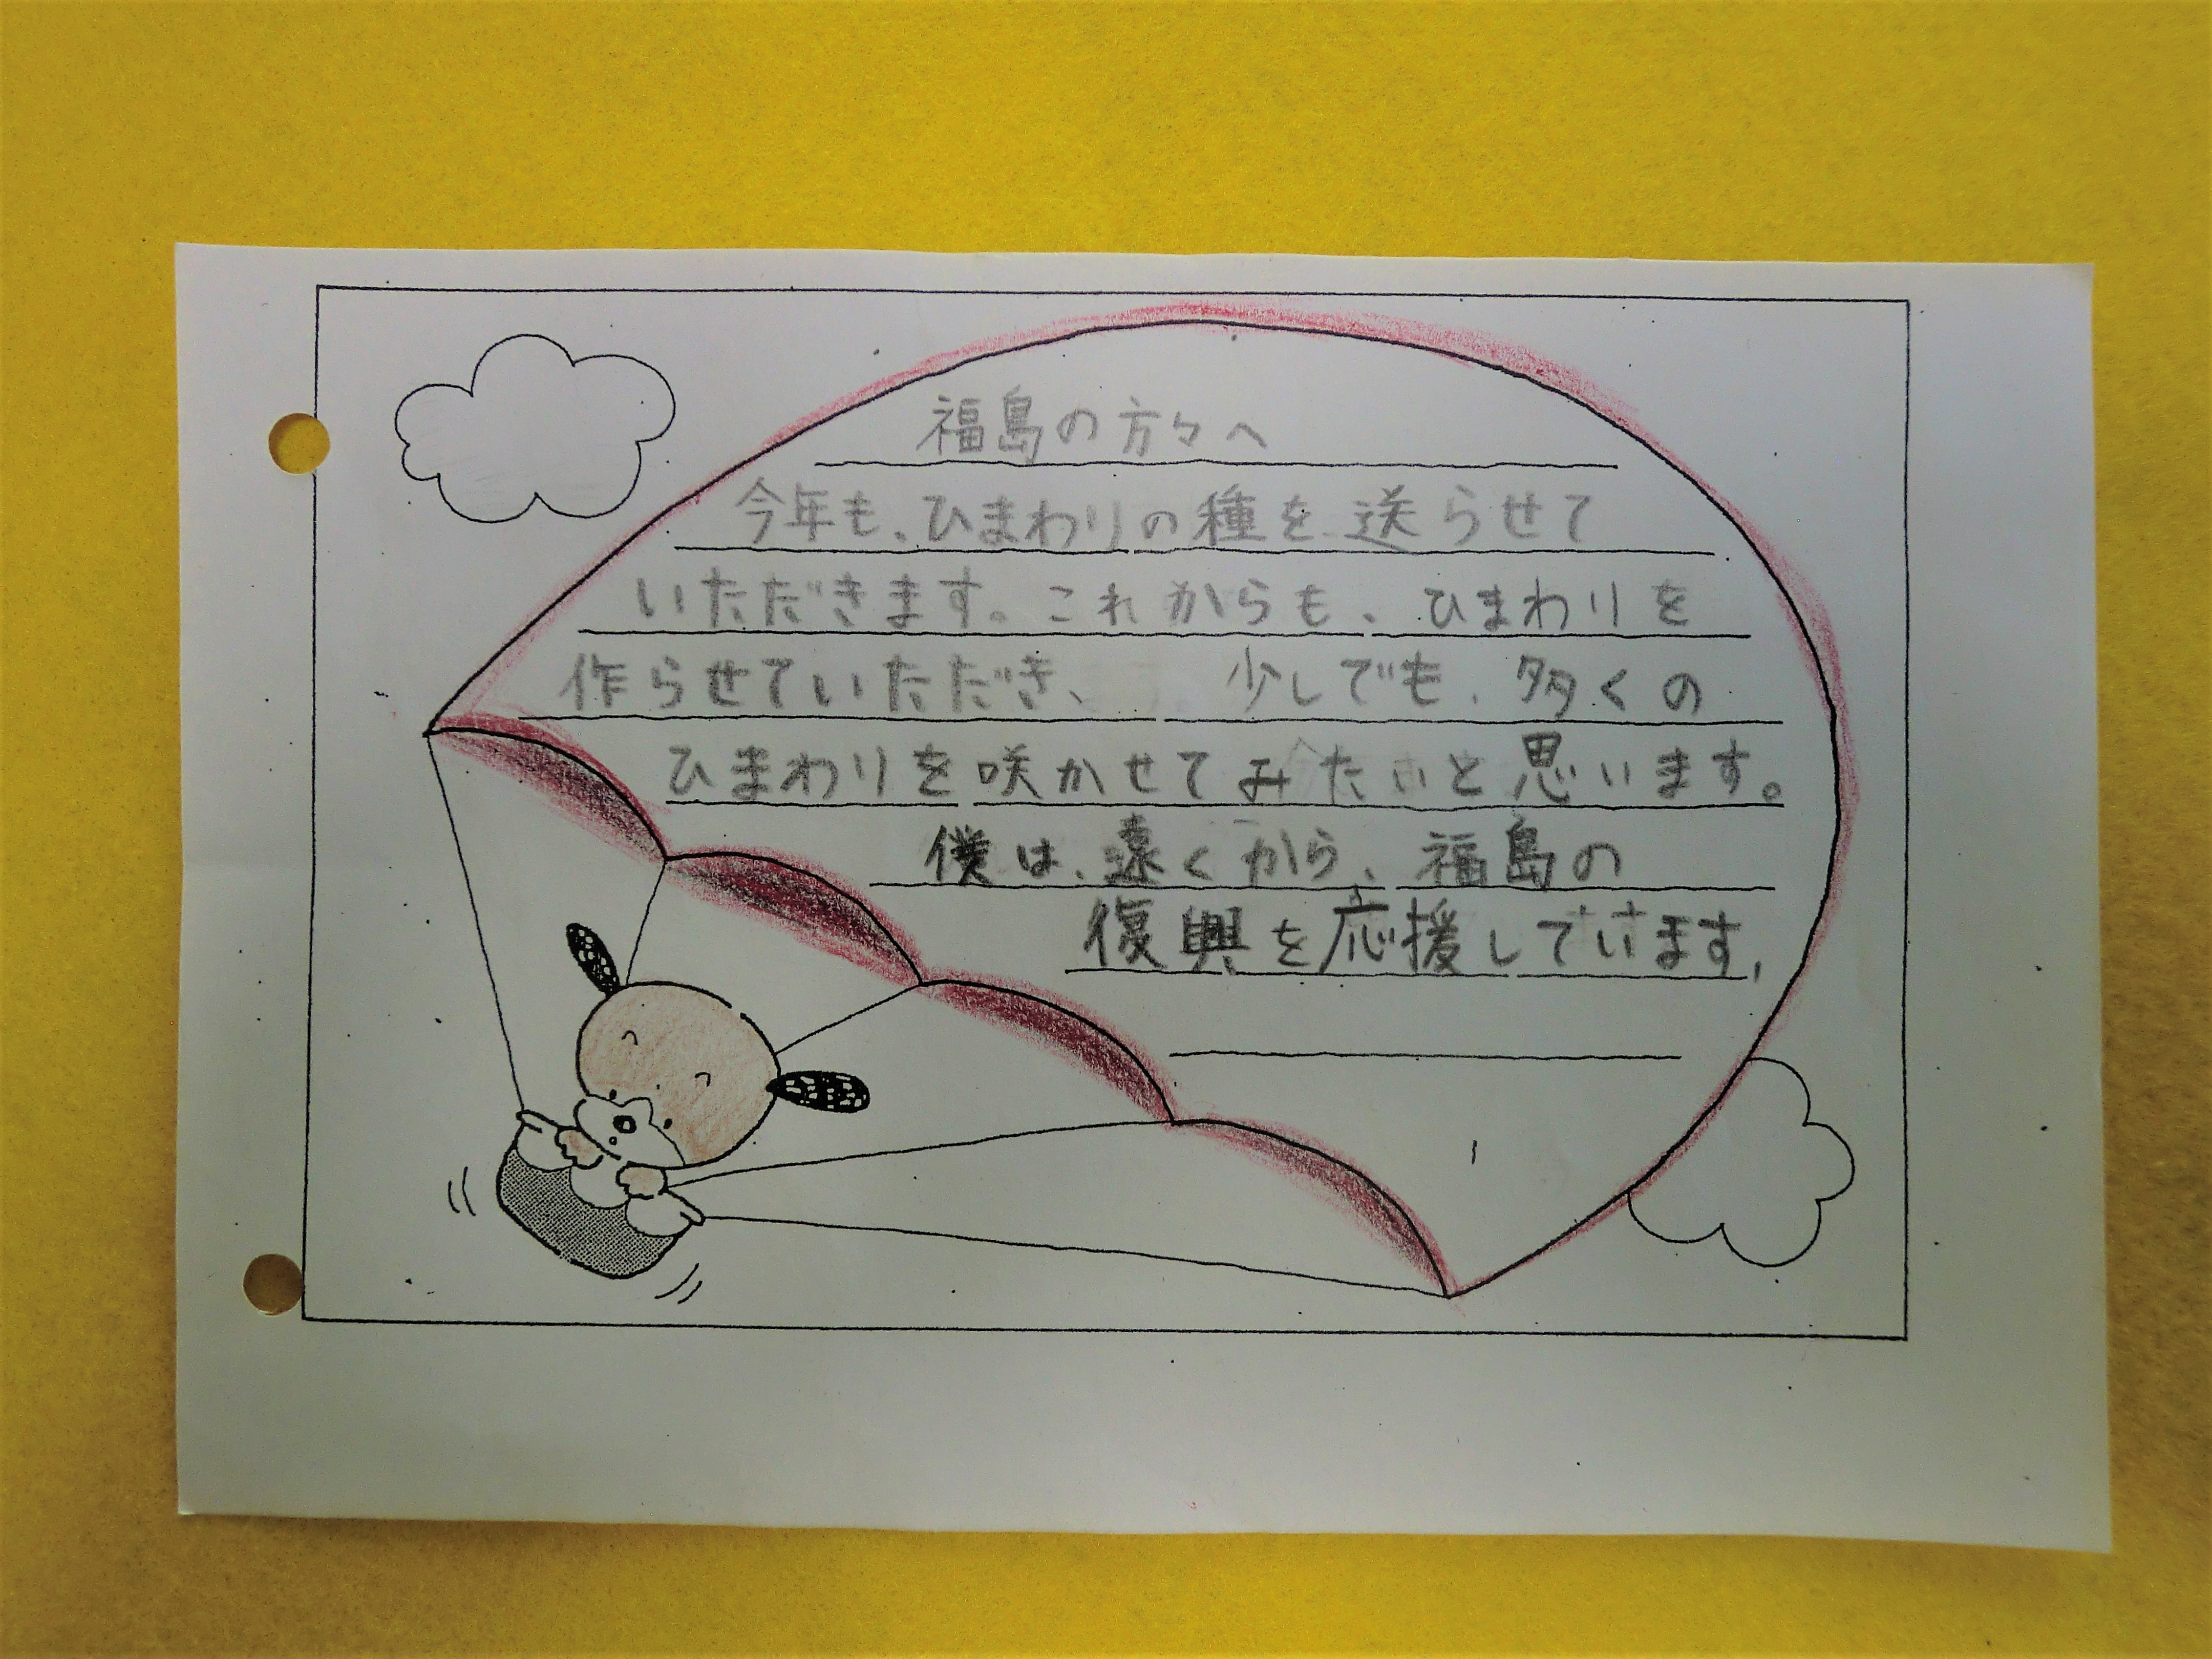 福島の方々へ
今年も、ひまわりの種を送らせて
いただきます。これからも、ひまわりを
作らせていただき、少しでも、多くの
ひまわりを咲かせてみたいと思います。
僕は、遠くから、福島の
復興を応援しています。